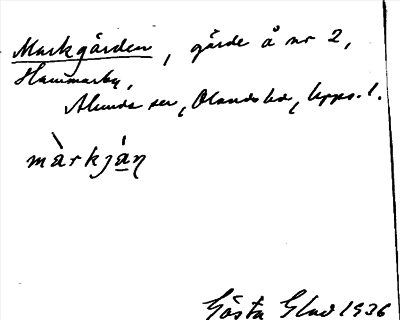 Markgården, gärde å nr 2,
Hammarby,
Alunda sn, Olands hd, Upps. l.
màrkjá̱ṇ
Gösta Glad 1936